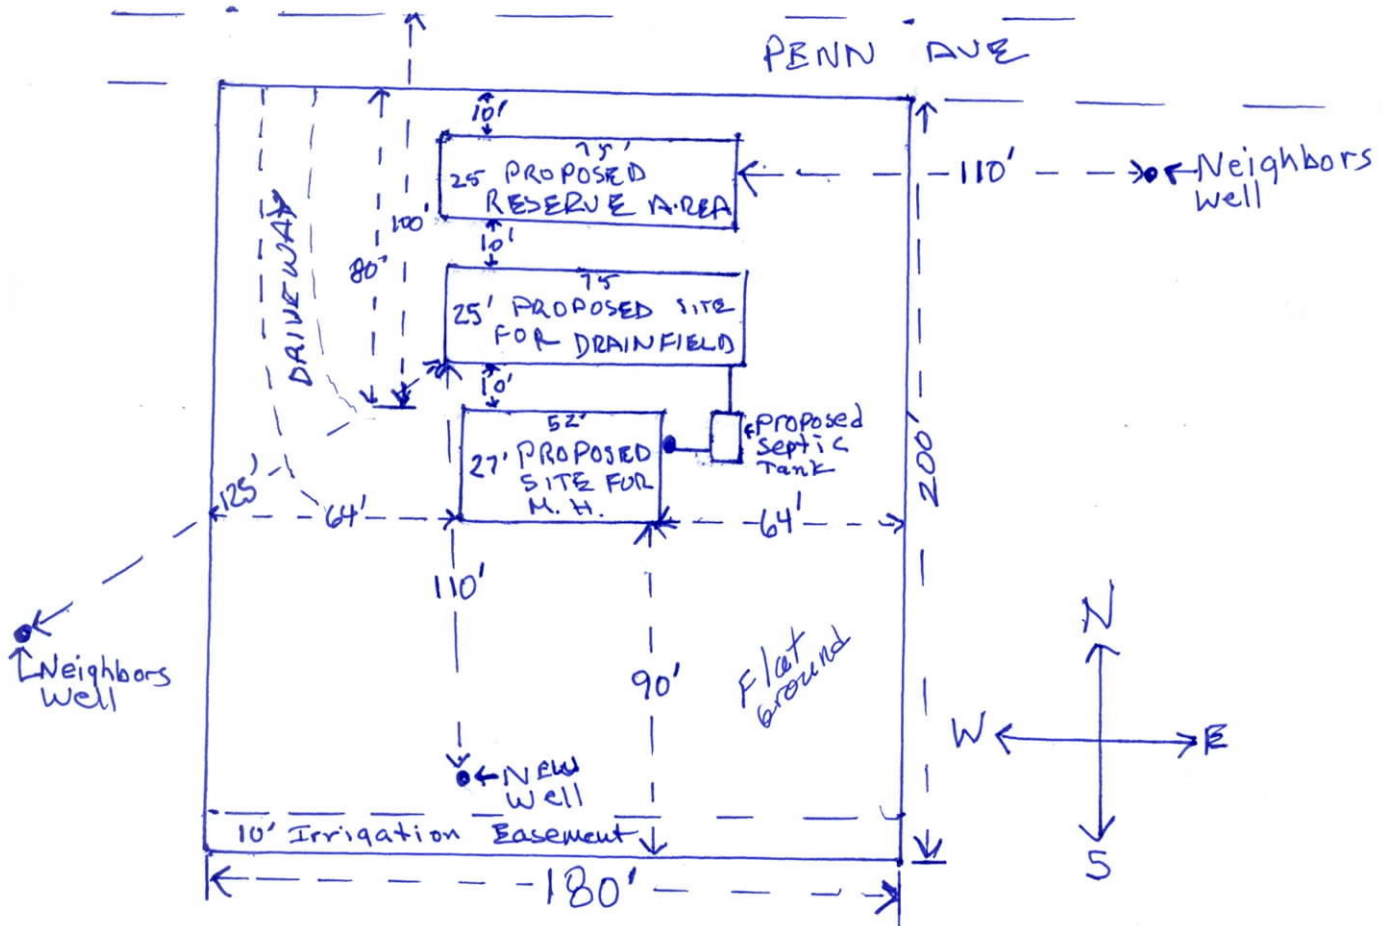 PENN AVE
10'
75'
25' PROPOSED
RESERVE AREA
110'
Neighbors
Well
DRIVEWAY
100'
80'
10'
75
25' PROPOSED SITE
FOR DRAINFIELD
10'
52'
27' PROPOSED
SITE FOR
M. H.
Proposed
Septic
Tank
200'
125'
64'
64'
110'
90'
Flat
Ground
Neighbors
Well
New
Well
10' Irrigation Easement
180'
N
W
E
S